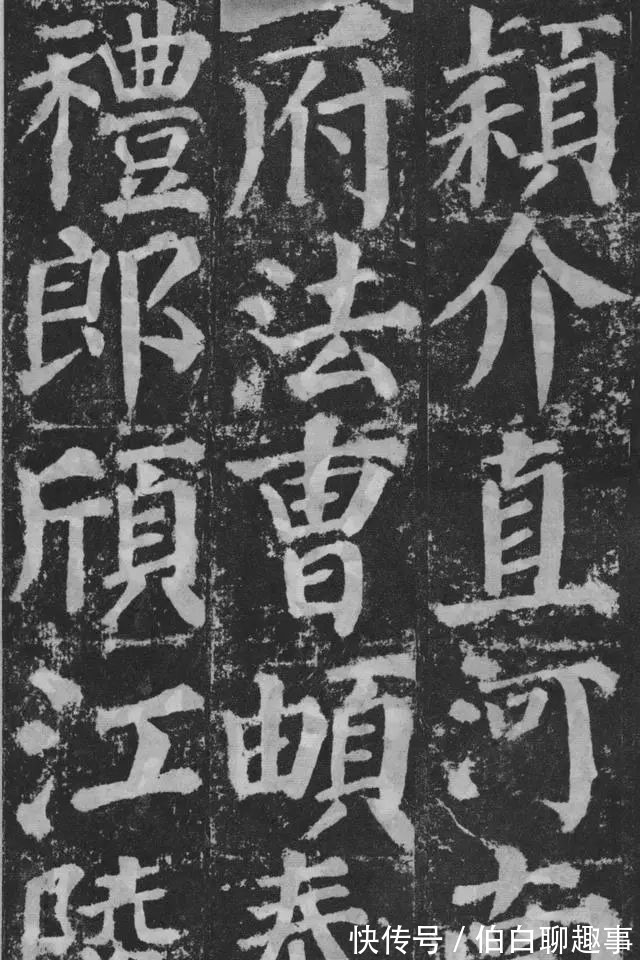 頛介直河南
府法曹頔奉
禮郎頎江陵
快传号 / 伯白聊趣事